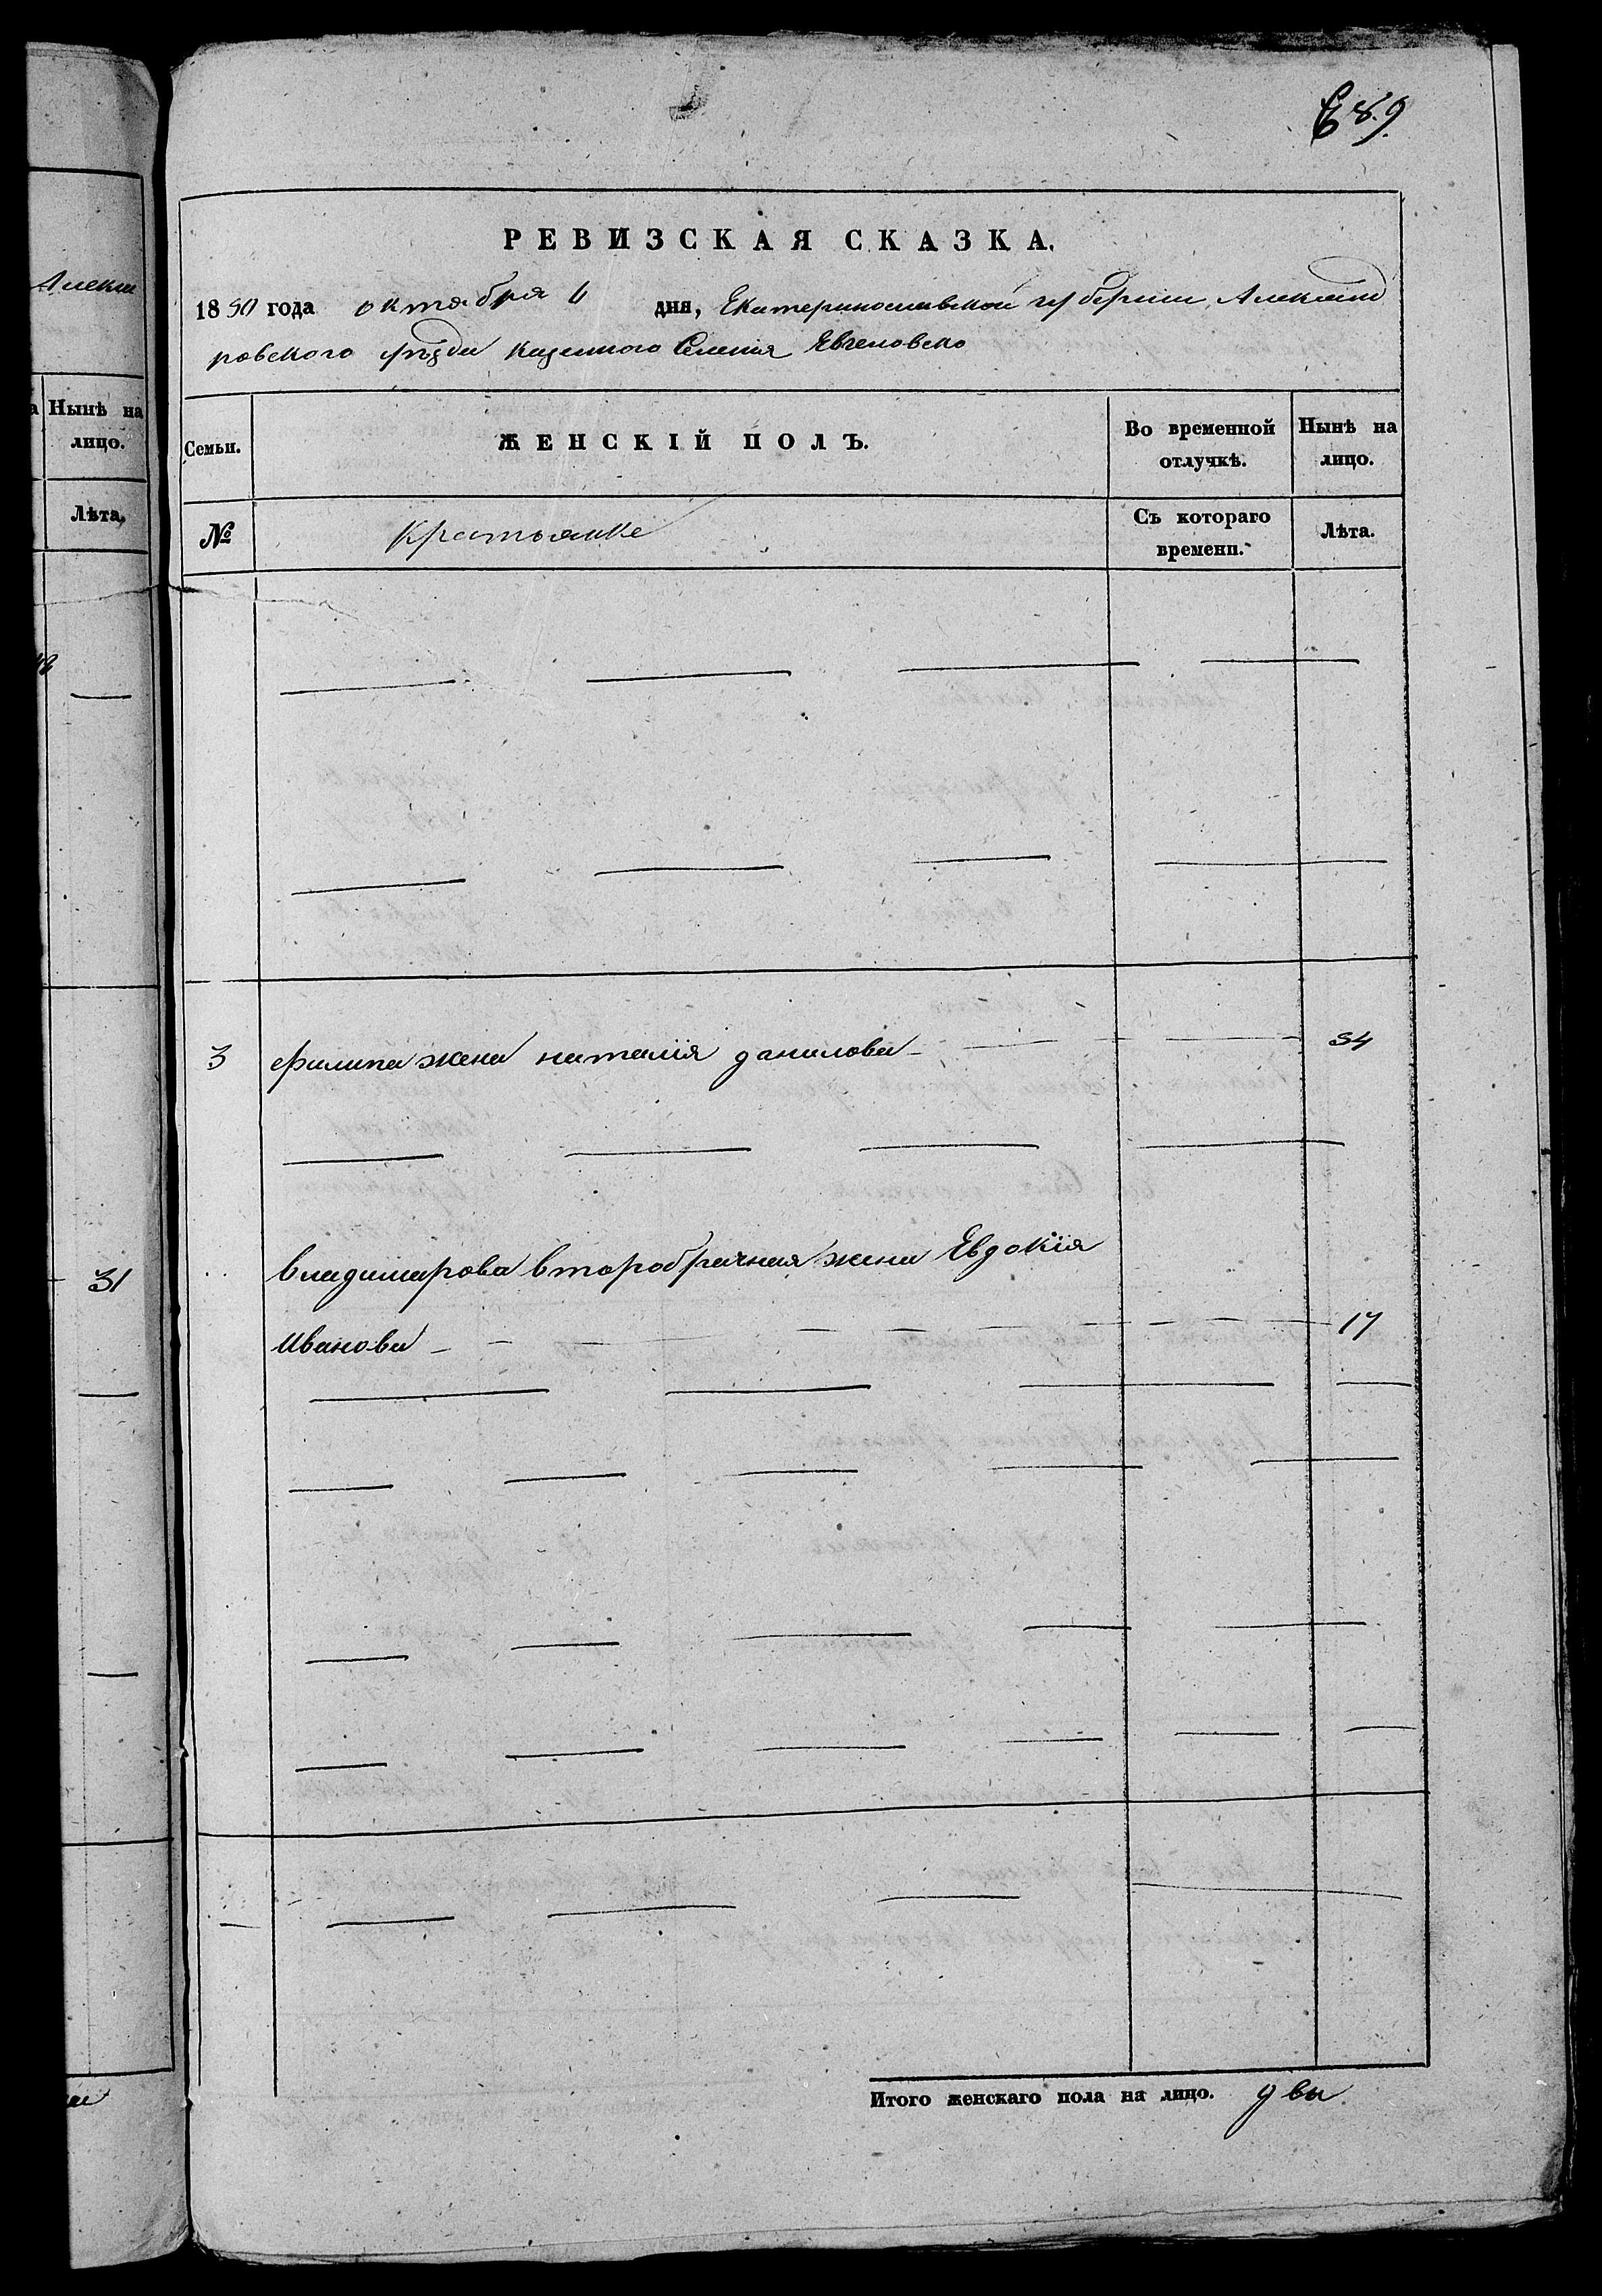 Алекса
Нынѣ на
лицо.
Лѣта.
31
89.
РЕВИЗСКАЯ СКАЗКА.
1850 года октября 6 дня, Екатеринославской губернии, Александ
ровского уѣзда казенного Селения
Семьи.
ЖЕНСКІЙ ПОЛЪ.
Во временной
отлучкѣ.
Нынѣ на
лицо.
№
Съ котораго
времени.
Лѣта.
3 Филипа жена наталія данилова 54
владимирова второбрачная жена Евдокія
Иванова 17
Итого женскаго пола на лицо. две